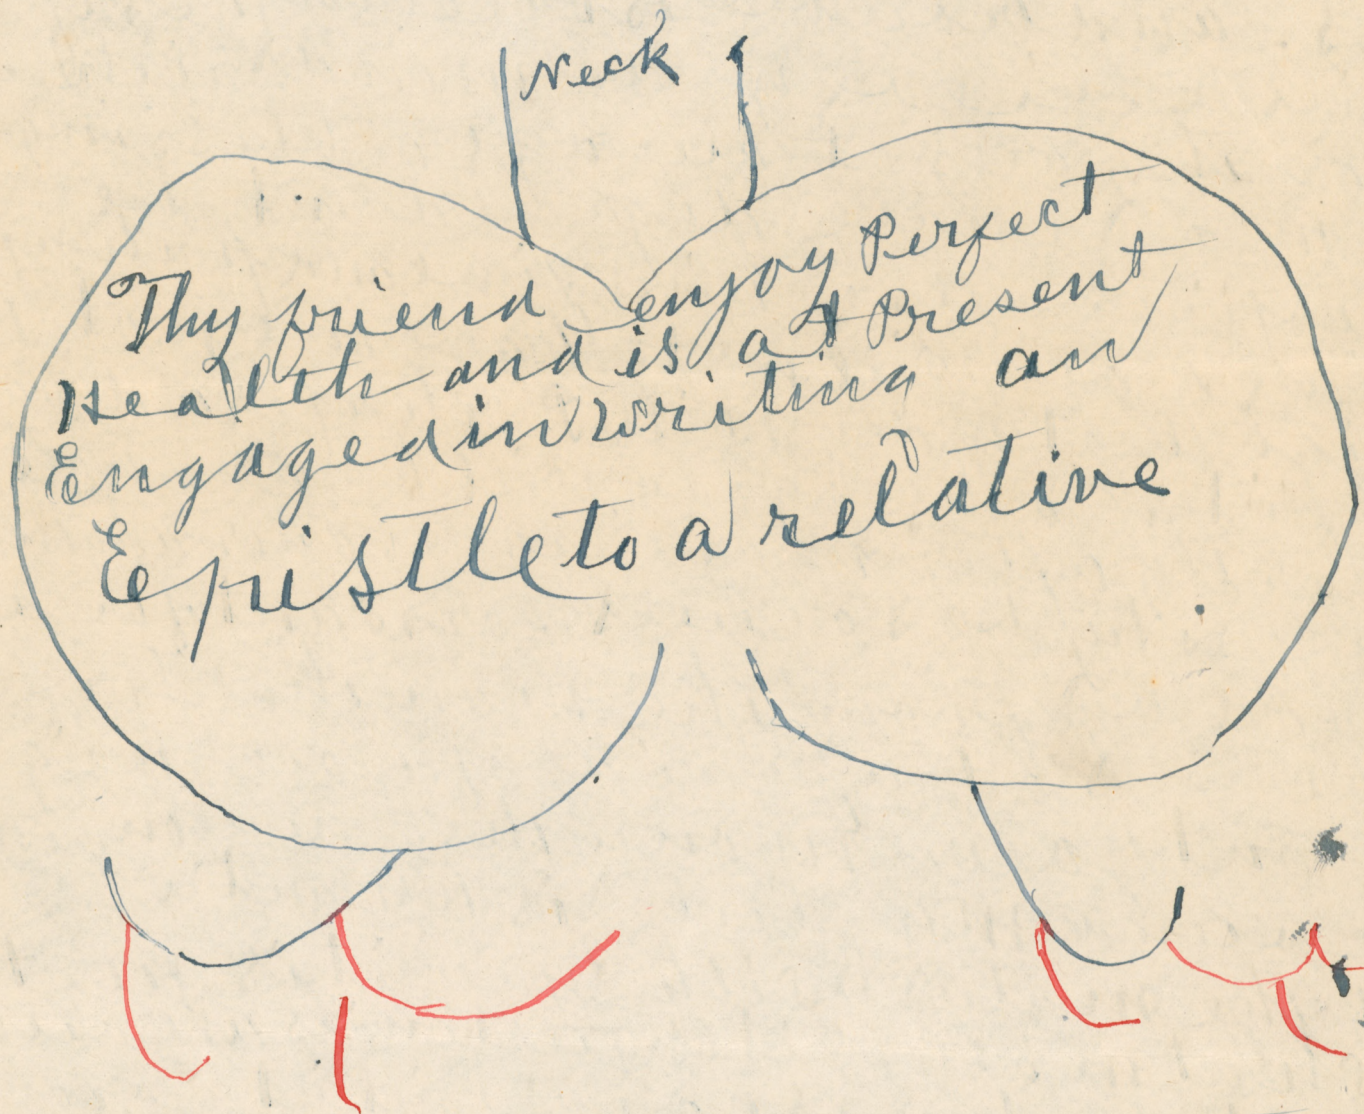 Neck
Thy friend enjoy Perfect
Health and is at Present
Engaged in writing an
Epistle to a relative